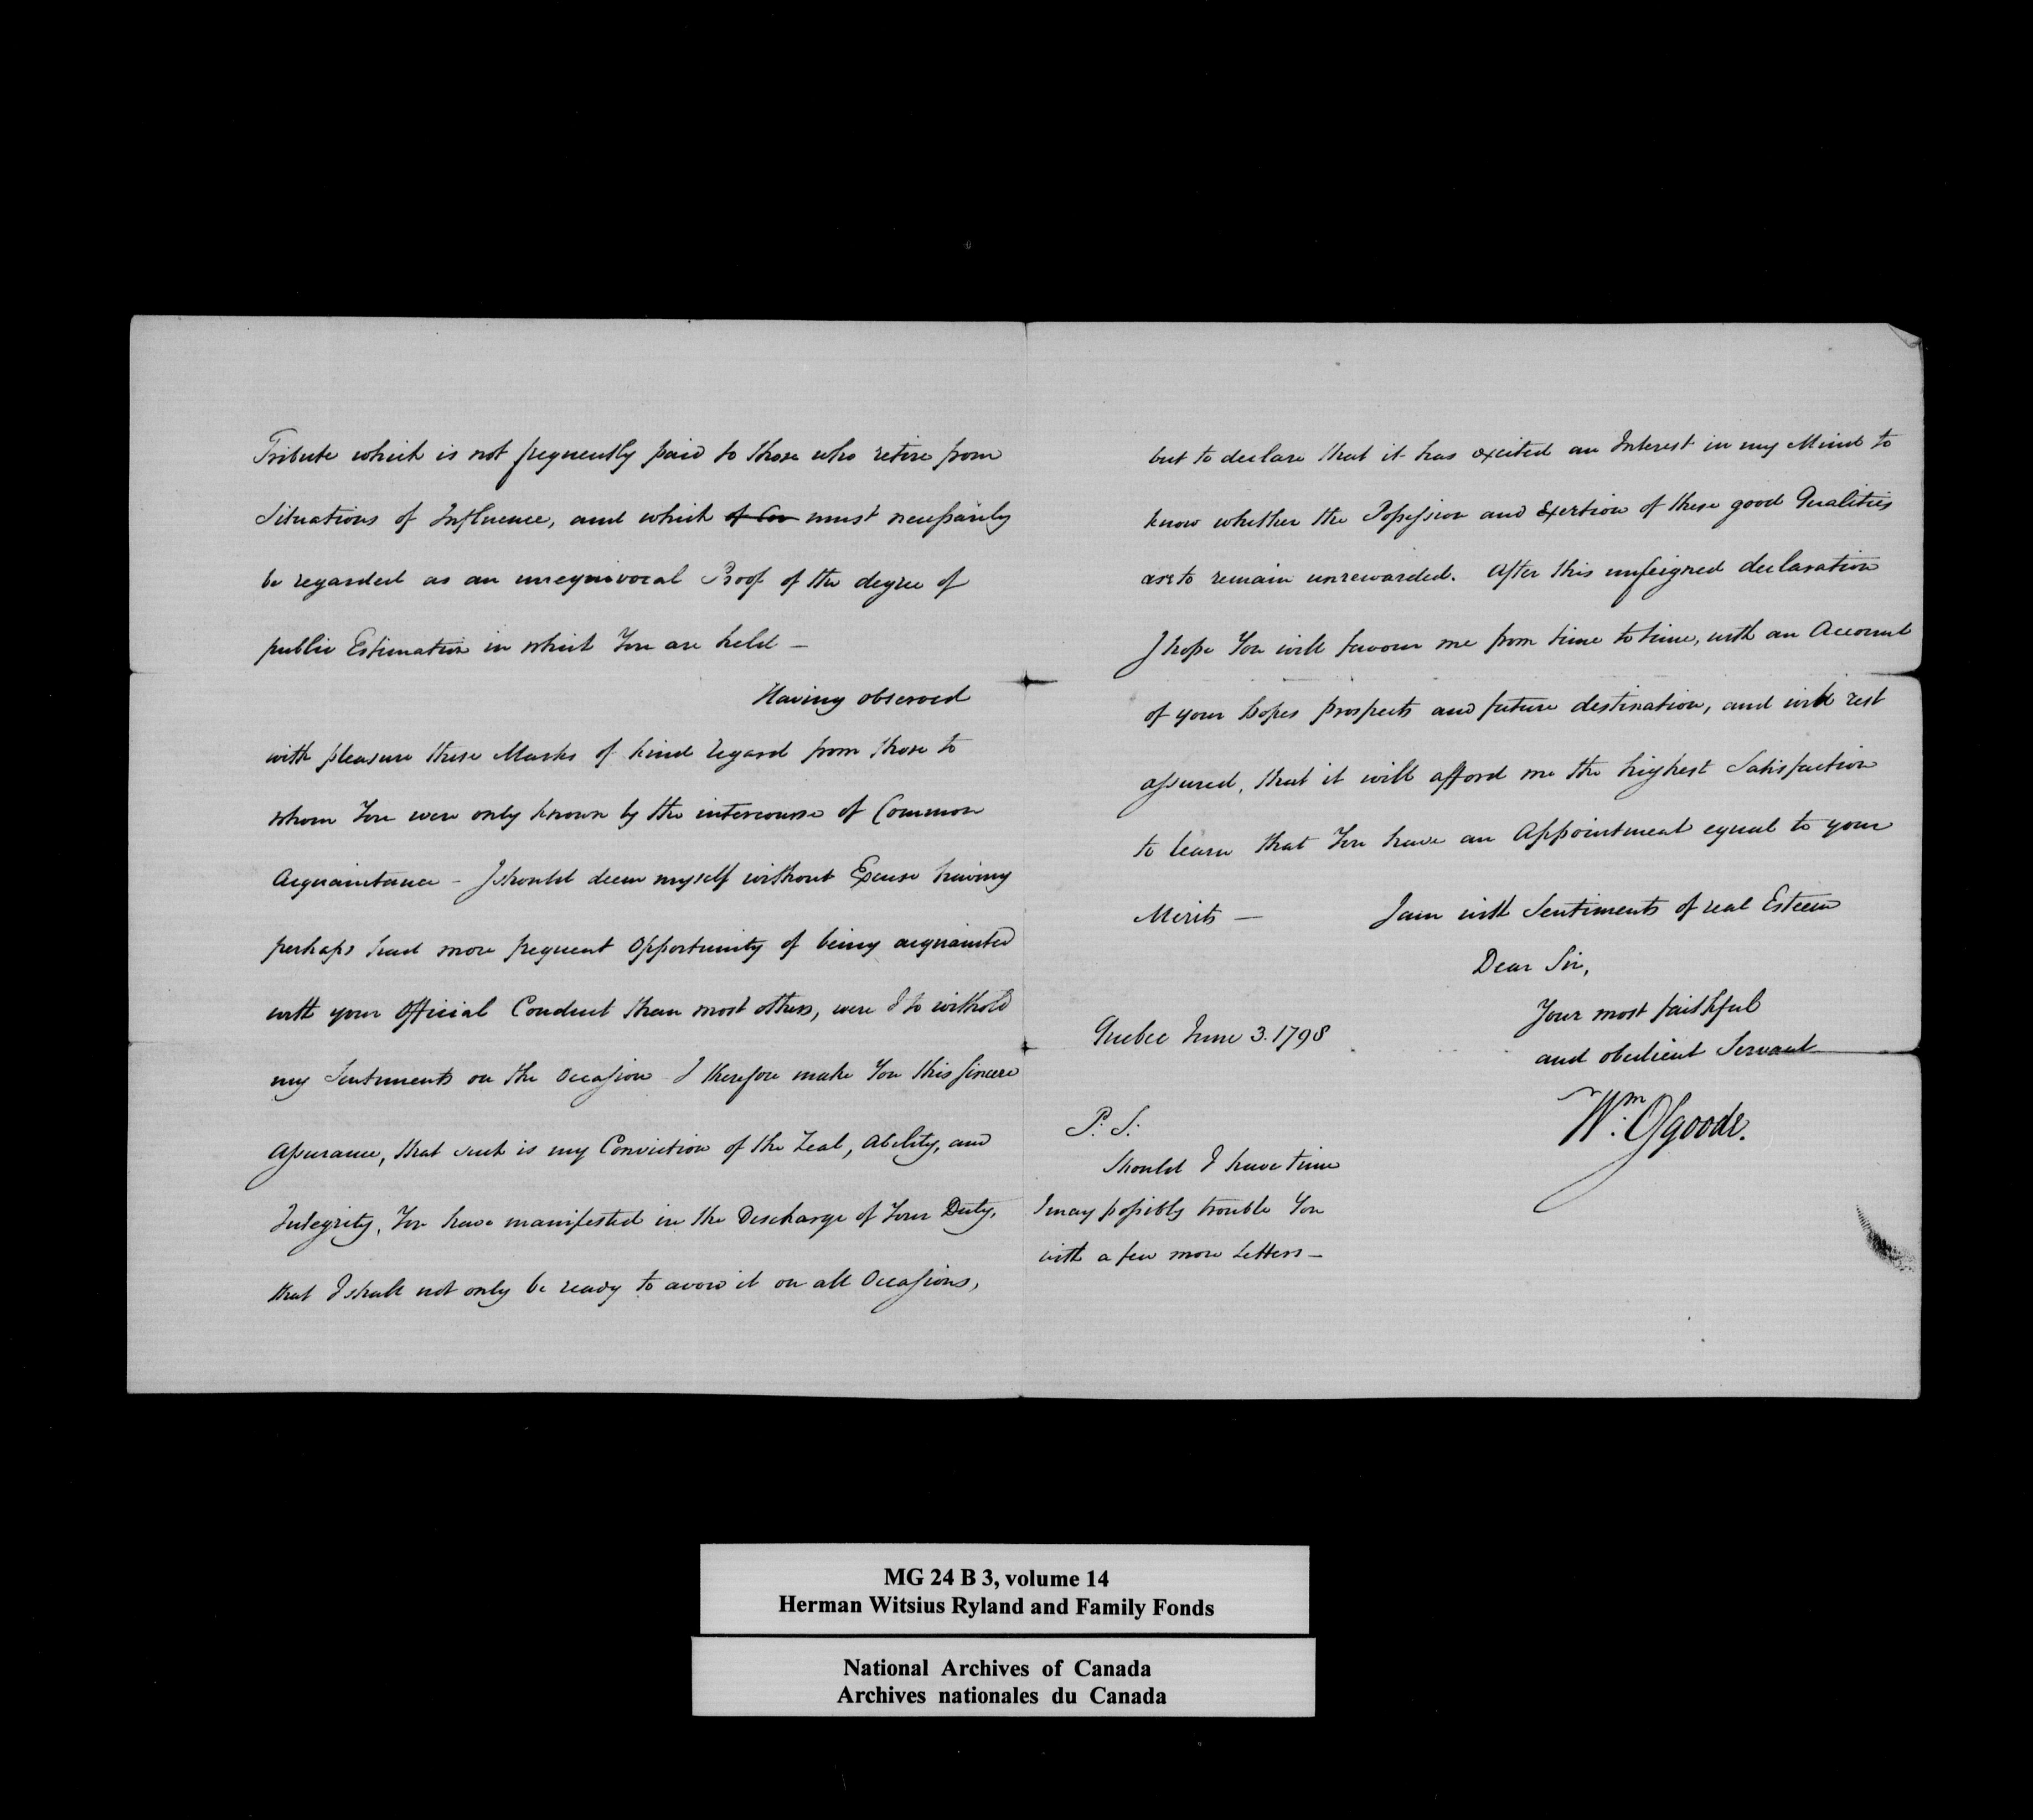 Tribute which is not frequently paid to those who retire from
Situations of Influence, and which of Con must necessarily
be regarded as an unequivocal Proof of the degree of
public Estimation in which You are held —
Having observed
with pleasure these Marks of kind regard from those to
whom You were only known by the intercourse of Common
Acquaintance – I should deem myself without Excuse having
perhaps had more frequent Opportunity of being acquainted
with your Official Conduct than most others, were I to withold
my Sentiments on the Occasion I therefore make You this sincere
Assurance, that such is my Conviction of the Zeal, Ability, and
Integrity, You have manifested in the Discharge of Your Duty,
that I shall not only be ready to avow it on all Occasions,
but to declare that it has excited an Interest in my Mind to
know whether the Possession and Exertion of these good Qualities
are to remain unrewarded. After this unfeigned declaration
I hope You will favour me from time to time, with an Account
of your hopes prospects and future destination, and will rest
assured, that it will afford me the highest Satisfaction
to learn that You have an Appointment equal to your
Merits — I am with Sentiments of real Esteem
Dear Sir,
Your most faithful
and obedient Servant
Wm. Osgoode.
Quebec June 3. 1798
P. S.
Should I have time
I may possibly trouble You
with a few more Letters —
MG 24 B 3, volume 14
Herman Witsius Ryland and Family Fonds
National Archives of Canada
Archives nationales du Canada